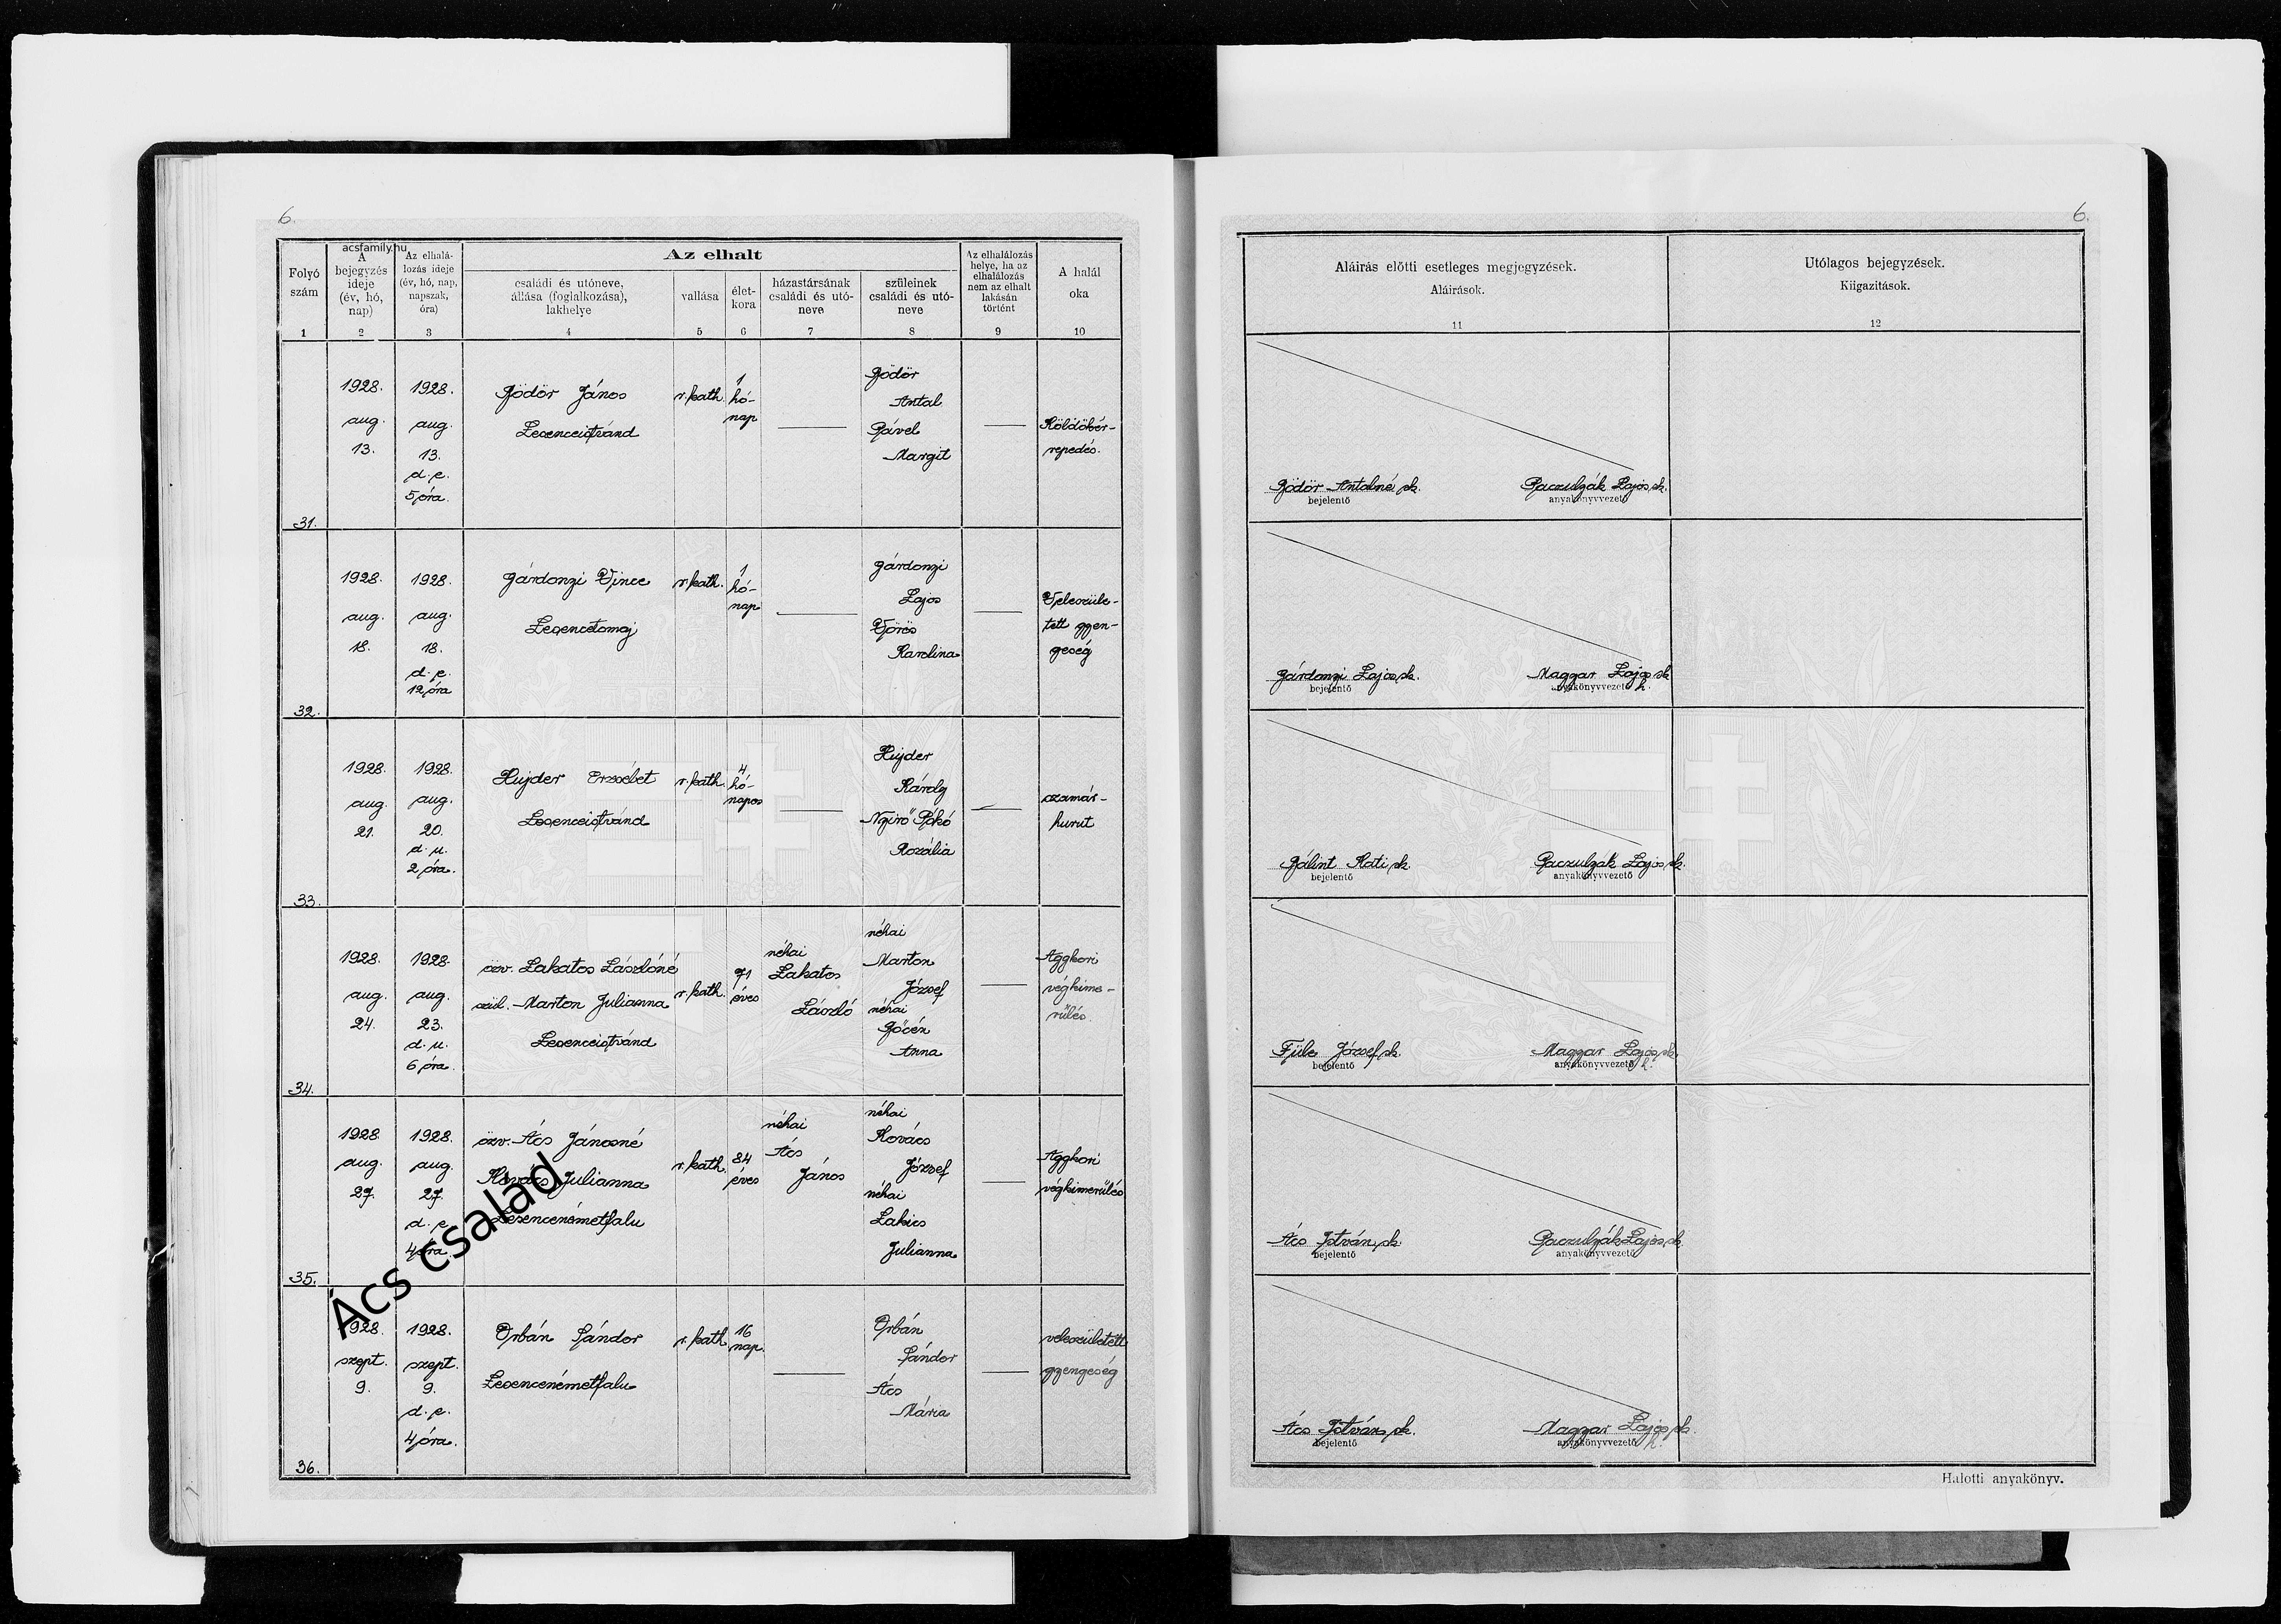 6.
acsfamily.hu
Folyó
szám
1
A
bejegyzés
ideje
(év, hó,
nap)
2
Az elhalá-
lozás ideje
(év, hó, nap,
napszak,
óra)
3
Az elhalt
családi és utóneve,
állása (foglalkozása),
lakhelye
4
vallása
5
élet-
kora
6
házastársának
családi és utó-
neve
7
szüleinek
családi és utó-
neve
8
Az elhalálozás
helye, ha az
elhalálozás
nem az elhalt
lakásán
történt
9
A halál
oka
10
31.
1928.
aug.
13.
1928.
aug.
13.
d. e.
5 óra.
Gödör János
Lesenceistvánd
r. kath.
1
hó-
nap
Gödör
Antal
Pável
Margit
repedés.
32.
1928.
aug.
18.
1928.
aug.
18.
d. e.
12 óra
Gárdonyi Vince
Lesencetomaj
r. kath.
1
hó-
nap
Gárdonyi
Lajos
Vörös
Karolina
Veleszüle-
tett gyen-
geség
33.
1928.
aug.
21.
1928.
aug.
20.
d. u.
2 óra.
Hujder Erzsébet
Lesenceistvánd
r. kath.
4
hó-
napos
Hujder
Károly
Nyirő
Rozália
szamár-
hurut
34.
1928.
aug.
24.
1928.
aug.
23.
d. u.
6 óra.
özv. Lakatos Lászlóné
szül. Marton Julianna
Lesenceistvánd
r. kath.
71
éves
néhai
Lakatos
László
néhai
Marton
József
néhai
Anna
Aggkori
végkime-
rülés.
35.
1928.
aug.
27.
1928.
aug.
27.
d. e.
4 óra.
özv. Ács Jánosné
Kovács Julianna
Lesencenémetfalu
r. kath.
84
éves
néhai
Ács
János
néhai
Kovács
József
néhai
Lakics
Julianna
Aggkori
végkimerülés
Ács család
36.
1928.
szept.
9.
1928.
szept.
9.
d. e.
4 óra.
Orbán Sándor
Lesencenémetfalu
r. kath.
16
nap.
Orbán
Sándor
Ács
Mária
veleszületett
gyengeség
6.
Aláirás előtti esetleges megjegyzések.
Aláirások.
11
Utólagos bejegyzések.
Kiigazitások.
12
Gödör Antalné sk.
bejelentő
Lajos sk.
anyakönyvvezető
Gárdonyi Lajos sk.
bejelentő
Magyar Lajos sk.
anyakönyvvezető h.
Bálint Kati sk.
bejelentő
Lajos sk.
anyakönyvvezető
Füle József sk.
bejelentő
Magyar Lajos sk.
anyakönyvvezető h.
Ács István sk.
bejelentő
Lajos sk.
anyakönyvvezető
Ács István sk.
bejelentő
Magyar Lajos sk.
anyakönyvvezető h.
Halotti anyakönyv.